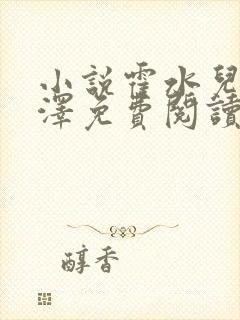 小說霍水兒
澤免費閱讀
醇香